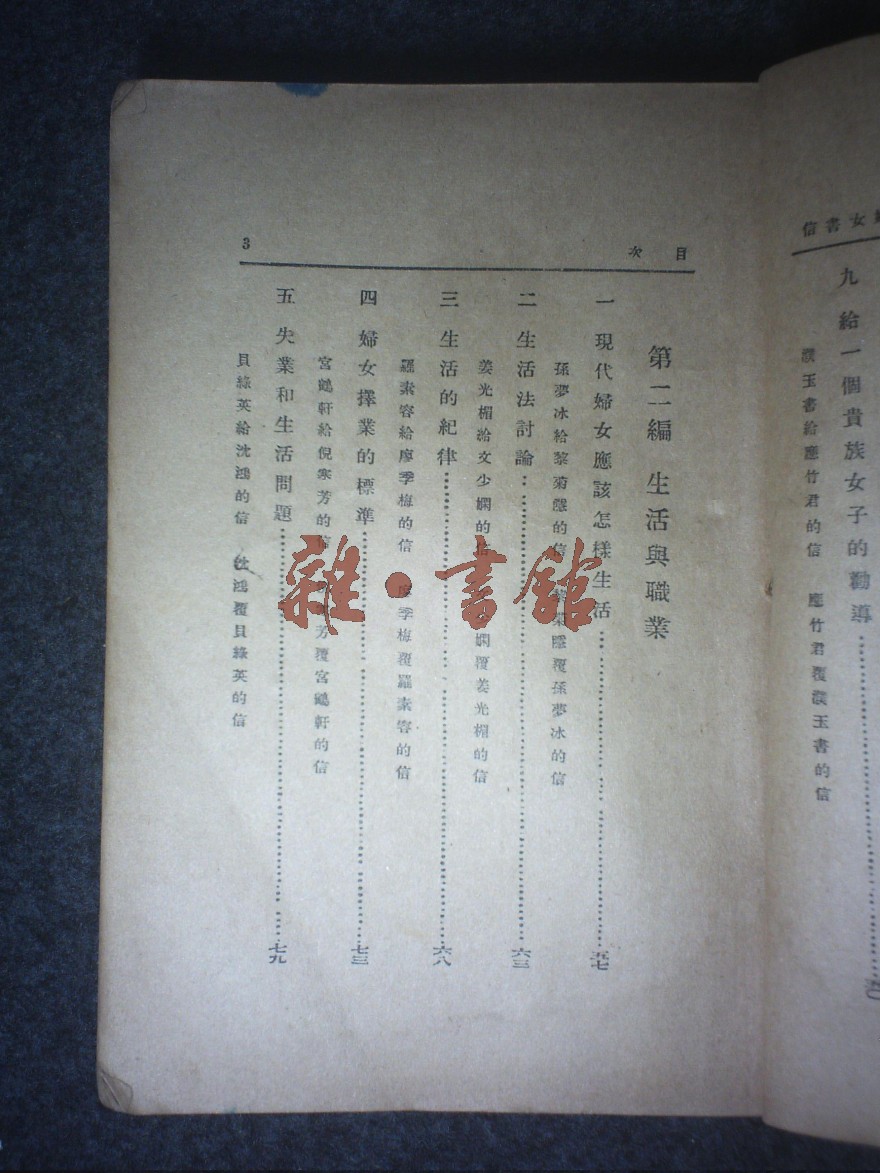 女書信
九 給一個貴族女子的勸導
濮玉書給應竹君的信 應竹君覆濮玉書的信
目次
3
第二編 生活與職業
一 現代婦女應該怎樣生活……五七
孫夢冰給黎菊隱的信 黎菊隱覆孫夢冰的信
二 生活法討論……六三
姜光楣給文少嫻的信 嫻覆姜光楣的信
三 生活的紀律……六八
羅素容給廖季梅的信 廖季梅覆羅素容的信
四 婦女擇業的標準……七三
宮鶴軒給倪寒芳的信 芳覆宮鶴軒的信
五 失業和生活問題……七九
貝綠英給沈鴻的信 沈鴻覆貝綠英的信
雜·書館